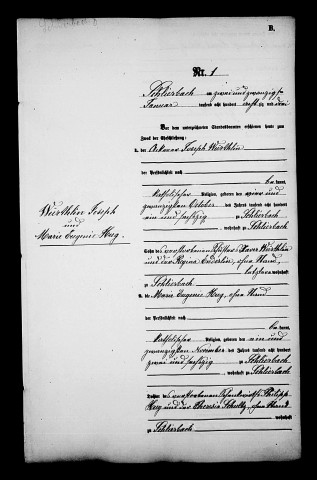 B.
Nr. 1
Schlierbach am zwei und zwanzigsten
Januar tausend acht hundert
Vor dem unterzeichneten Standesbeamten erschienen heute zum
Zweck der Eheschließung:
1. der Ackerer Joseph Würthlin
der Persönlichkeit nach
kannt,
katholischer Religion, geboren den
zwanzigsten October des Jahres tausend acht hundert
ein und sechzig zu Schlierbach
, wohnhaft zu Schlierbach
Würthlin Joseph
und
Marie Eugenie Hug.
Sohn des verstorbenen Xaver Würthlin
und der Regina Enderlin, ohne Stand,
letztere wohnhaft
zu Schlierbach
2. die Marie Eugenie Hug, ohne Stand
der Persönlichkeit nach
kannt,
katholischer Religion, geboren den ein und
zwanzigsten November des Jahres tausend acht hundert
und sechzig zu Schlierbach
, wohnhaft zu Schlierbach
Tochter des verstorbenen Philipp
Hug und der Theresia Schultz, ohne Stand
wohnhaft
zu Schlierbach